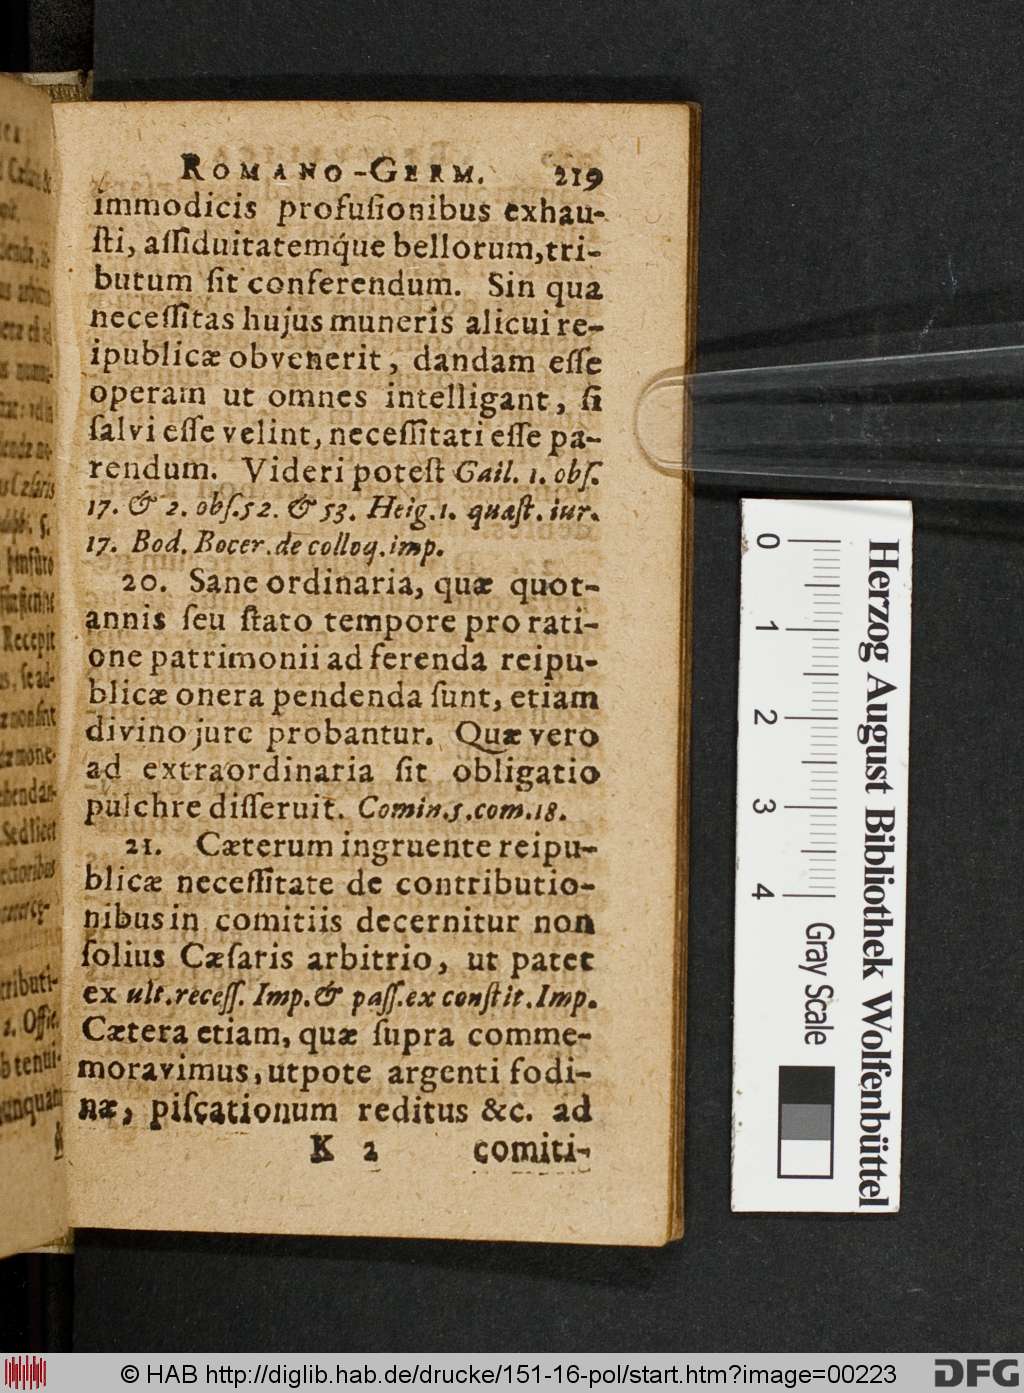 ROMANO-GERM. 219
immodicis profuſionibus exhau-
ſti, aſſiduitatemq́ue bellorum, tri-
butum ſit conferendum. Sin qua
neceſſitas hujus muneris alicui re-
ipublicæ obvenerit, dandam eſſe
operam ut omnes intelligant, ſi
ſalvi eſſe velint, neceſſitati eſſe pa-
rendum. Videri poteſt Gail. 1. obſ.
17. & 2. obſ. 52. & 53. Heig. 1. quæſt. iur.
17. Bod. Bocer. de colloq. imp.
20. Sane ordinaria, quæ quot-
annis ſeu ſtato tempore pro rati-
one patrimonii ad ferenda reipu-
blicæ onera pendenda ſunt, etiam
divino jure probantur. Quæ vero
ad extraordinaria ſit obligatio
pulchre diſſeruit. Comin. 5. com. 18.
21. Cæterum ingruente reipu-
blicæ neceſſitate de contributio-
nibus in comitiis decernitur non
ſolius Cæſaris arbitrio, ut patet
ex ult. receſſ. Imp. & paſſ. ex conſtit. Imp.
Cætera etiam, quæ ſupra comme-
moravimus, utpote argenti fodi-
næ, piſcationum reditus &c. ad
K 2 comiti-
0 1 2 3 4
Herzog August Bibliothek Wolfenbüttel
Gray Scale
© HAB http://diglib.hab.de/drucke/151-16-pol/start.htm?image=00223
DFG